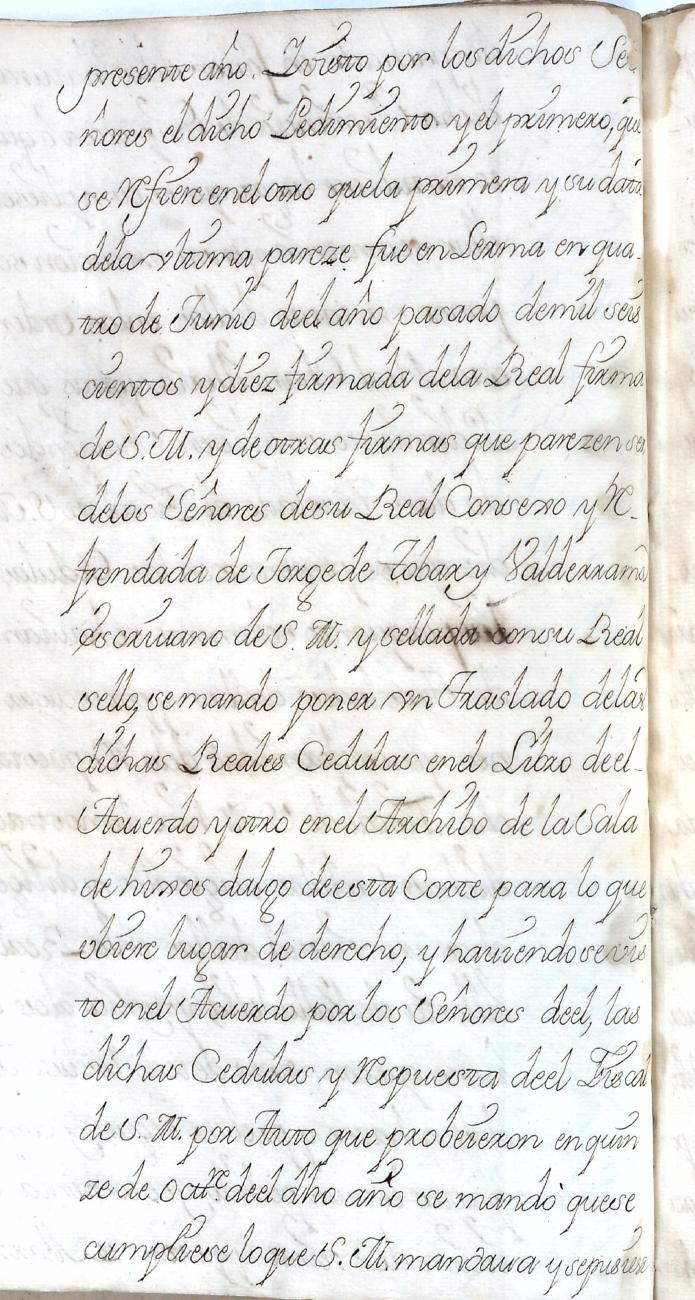 presente año. Ivisto por los dichos Se-
ñores el dicho Pedimiento y el primero, que
se Refiere en el otro que la primera y su data
dela vltima pareze fue en Lerma en qua-
tro de Junio deel año pasado demil seis
cientos y diez firmada dela Real firma
de S. M. y de otras firmas que parezen ser
delos Señores desu Real Consexo y Re-
frendada de Jorge de Tobar y Valderrama
escriuano de S. M. y sellada con su Real
sello, se mando poner vn Traslado delas
dichas Reales Cedulas en el Libro deel-
Acuerdo y otro en el Archibo de la Sala
de hixos dalgo de esta Corte para lo que
vbiere lugar de derecho, y hauiendose vis
to en el Acuerdo por los Señores deel, las
dichas Cedulas y Respuesta deel Fiscal
de S. M. por Auto que probeieron en quin
ze de Octre. deel dho año se mandò que se
cumpliese lo que S. M. mandaua y se pusiese